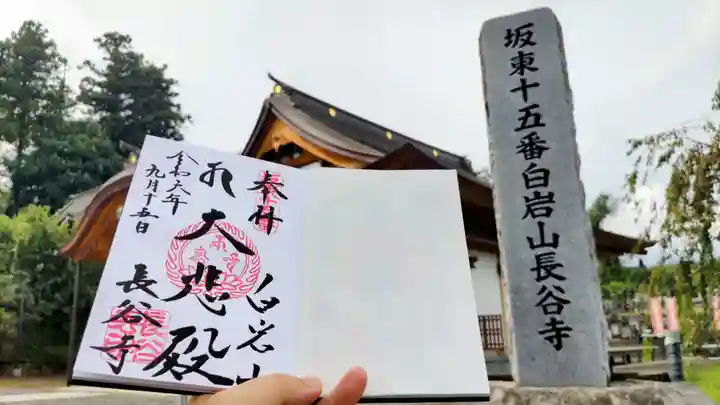 坂東十五番白岩山長谷寺
奉拝
白岩山
大悲殿
長谷寺
令和六年
九月十五日